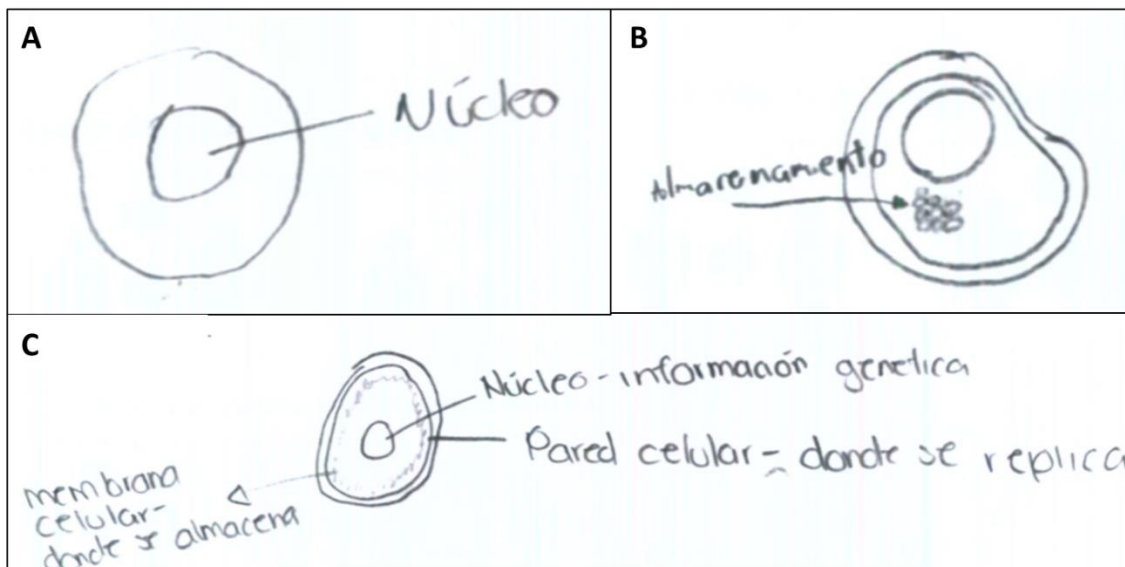 A
Núcleo
B
Almacenamiento
C
Núcleo-información genetica
Pared celular- donde se replica
membrana
celular-
donde se almacena